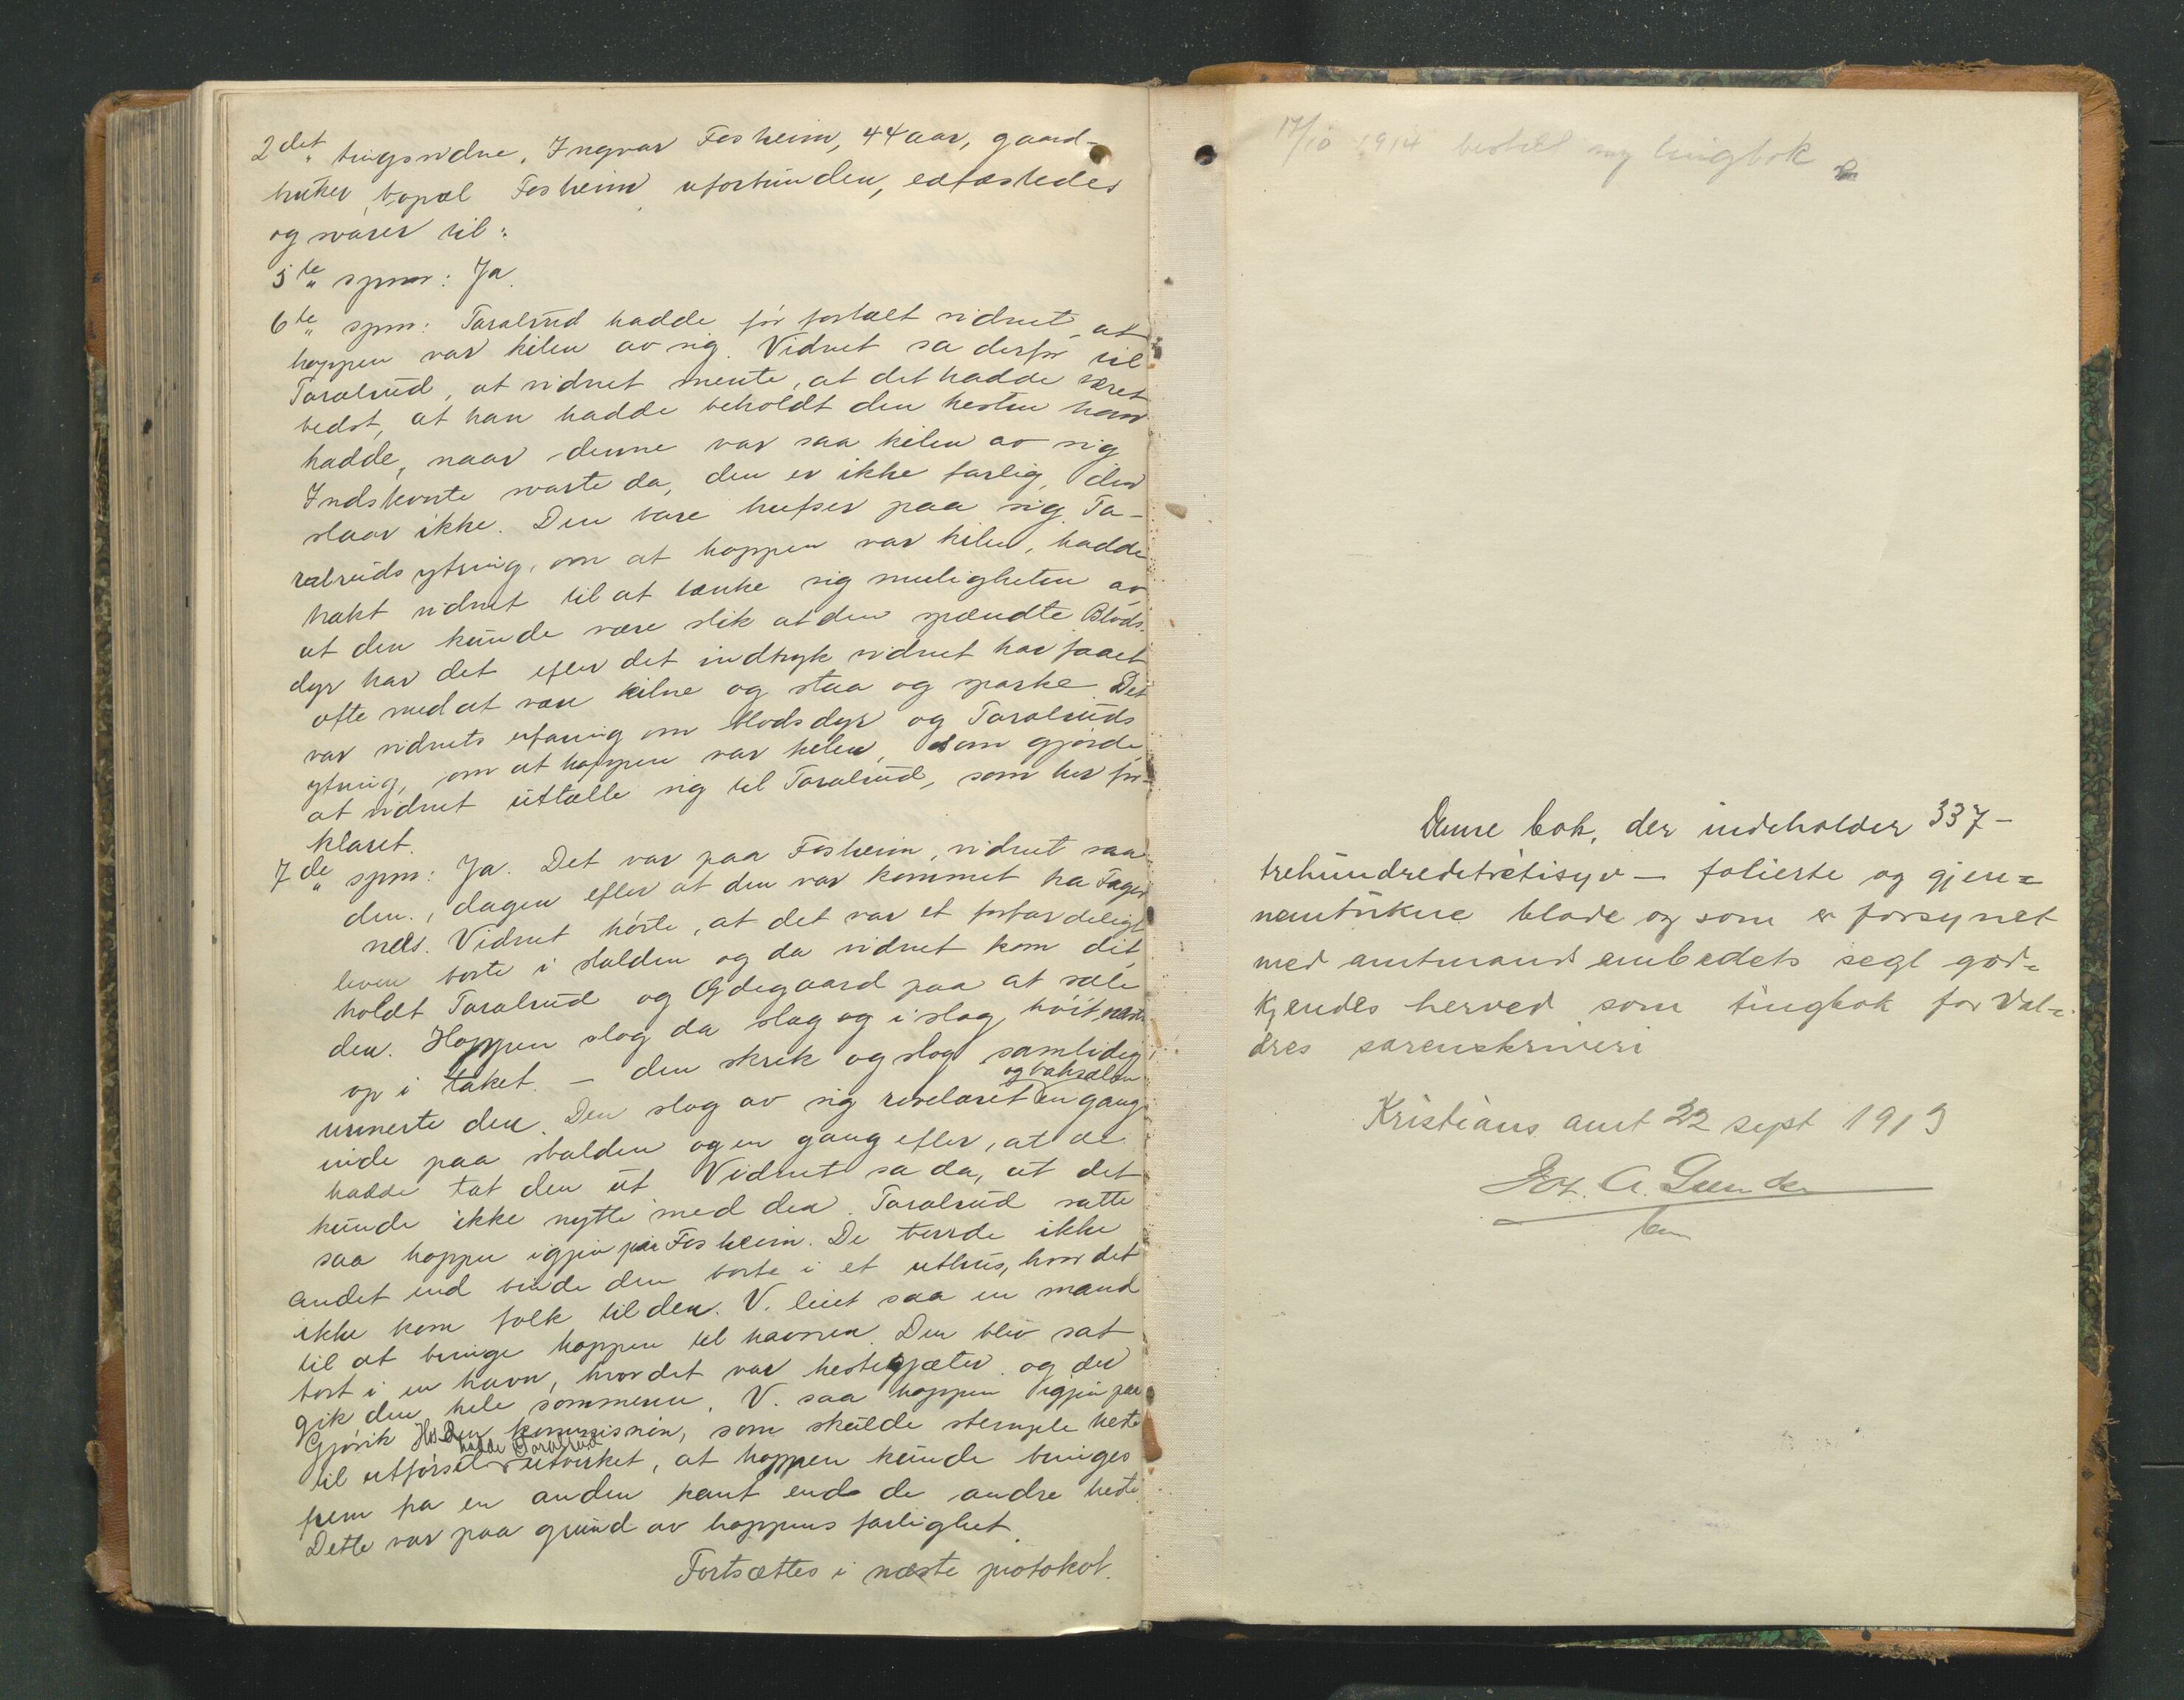 2det tingsvidne, Ingvar Fosheim, 44 aar, gaard-
bruker, bopæl Fosheim uforbunden, edfæstedes
og svarer til:
5te spm: Ja.
6te spm: Taralrud hadde før fortalt vidnet at
hoppen var kilen av sig. Vidnet sa derfor til
Taralrud, at vidnet mente, at det hadde været
bedst, at han hadde beholdt den hesten han
hadde, naar denne var saa kilen av sig
Indstevnte svarte da, den er ikke farlig, den
slaar ikke. Den bare hufser paa sig. Ta-
ralruds ytring, om at hoppen var kilen, hadde
bakt vidnet til at tænke sig muligheten av
at den kunde være slik at den spændte. Blods-
dyr har det efter det indtryk vidnet har faaet
ofte med at være kilne og staa og sparke. Det
var vidnets erfaring om blodsdyr og Taralruds
ytring, om at hoppen var kilen, som gjorde
at vidnet uttalte sig til Taralrud, som her for-
klaret.
7de spm: Ja. Det var paa Fosheim, vidnet saa
den, dagen efter at den var kommet fra Fager-
nes. Vidnet hørte, at det var et forfærdeligt
leven borte i stalden og da vidnet kom dit,
holdt Taralrud og Ødegaard paa at sæle
den. Hoppen slog da slag og i slag, høit, næsten
op i taket. – den skrek og slog samtidig
urinerte den. Den slog av sig reveläret og baksælen en gang
inde paa stalden og en gang efter, at de
hadde tat den ut. Vidnet sa da, at det
kunde ikke nytte med den. Taralrud satte
saa hoppen igjen paa Fosheim. De torde ikke
andet end binde den borte i et uthus, hvor det
ikke kom folk til den. V. leiet saa en mand
til at bringe hoppen til havnen. Den blev sat
bort i en havn, hvor det var hestegjæter og der
gik den hele sommeren. V. saa hoppen igjen paa
Gjøvik. Hos Den kommision, som skulde stemple heste
til utførsel hadde Taralrud utvirket, at hoppen kunde bringes
frem fra en anden kant end de andre heste
Dette var paa grund av hoppens farlighet.
Fortsættes i næste protokol.
17/10 1914 bestilt ny tingbok
Denne bok, der indeholder 337 –
trehundredetretisyv – folierte og gjen=
nemtrukne blade og som er forsynet
med amtmandsembedets segl god=
kjendes herved som tingbok for Val=
dres sorenskriveri
Kristians amt 22 sept 1913